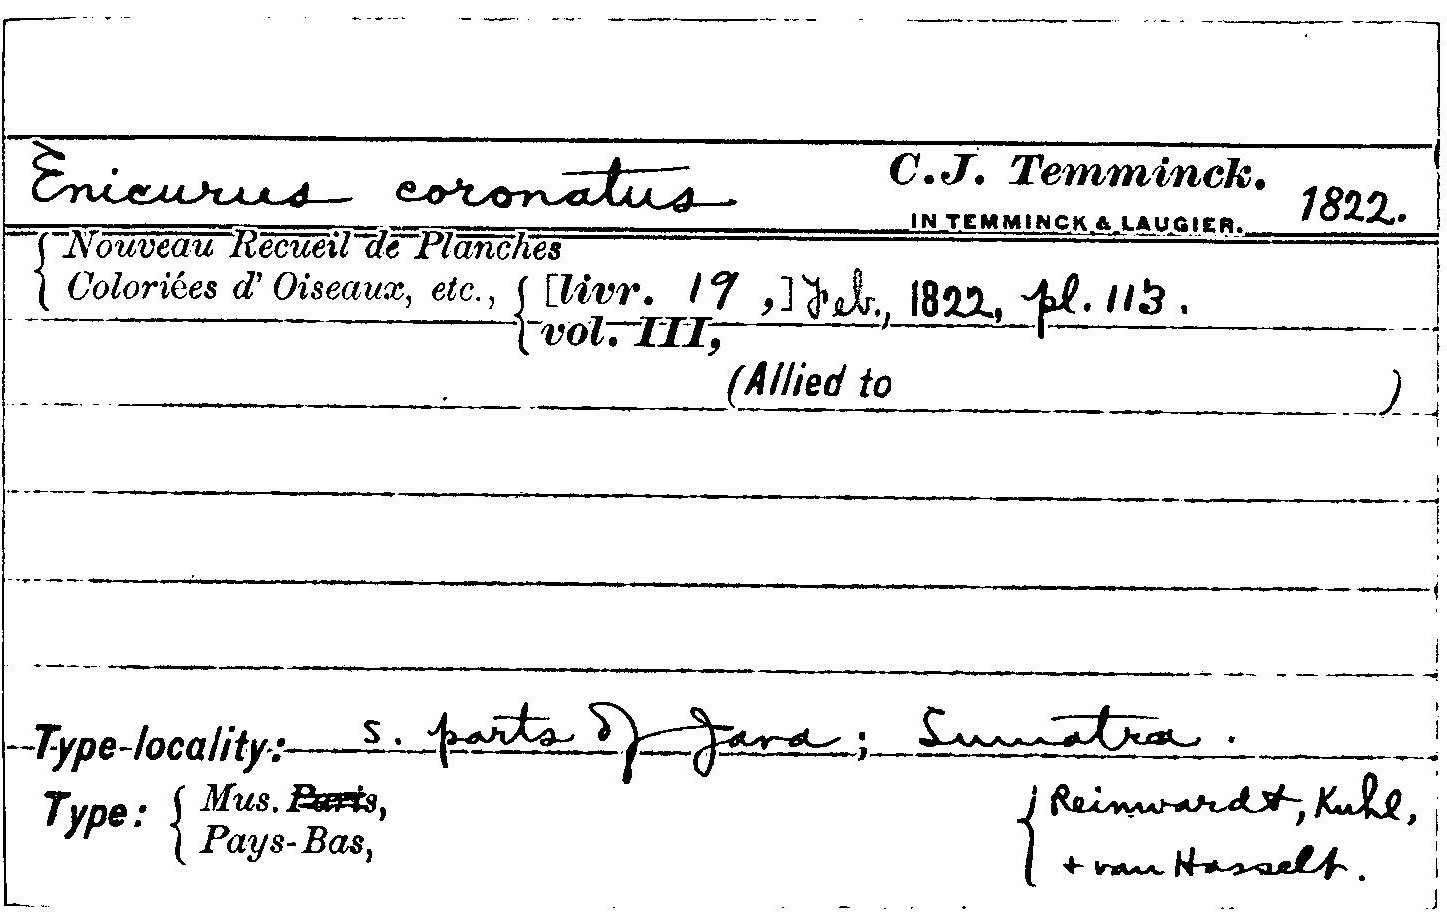 Enicurus coronatus C.J. Temminck. 1822.
IN TEMMINCK & LAUGIER.
Nouveau Recueil de Planches
Coloriées d' Oiseaux, etc., [livr. 19,] Feb., 1822, pl. 113.
vol. III,
(Allied to )
Type-locality: S. parts of Java; Sumatra.
Type: Mus. Paris, Reinwardt, Kuhl,
Pays-Bas, + van Hasselt.